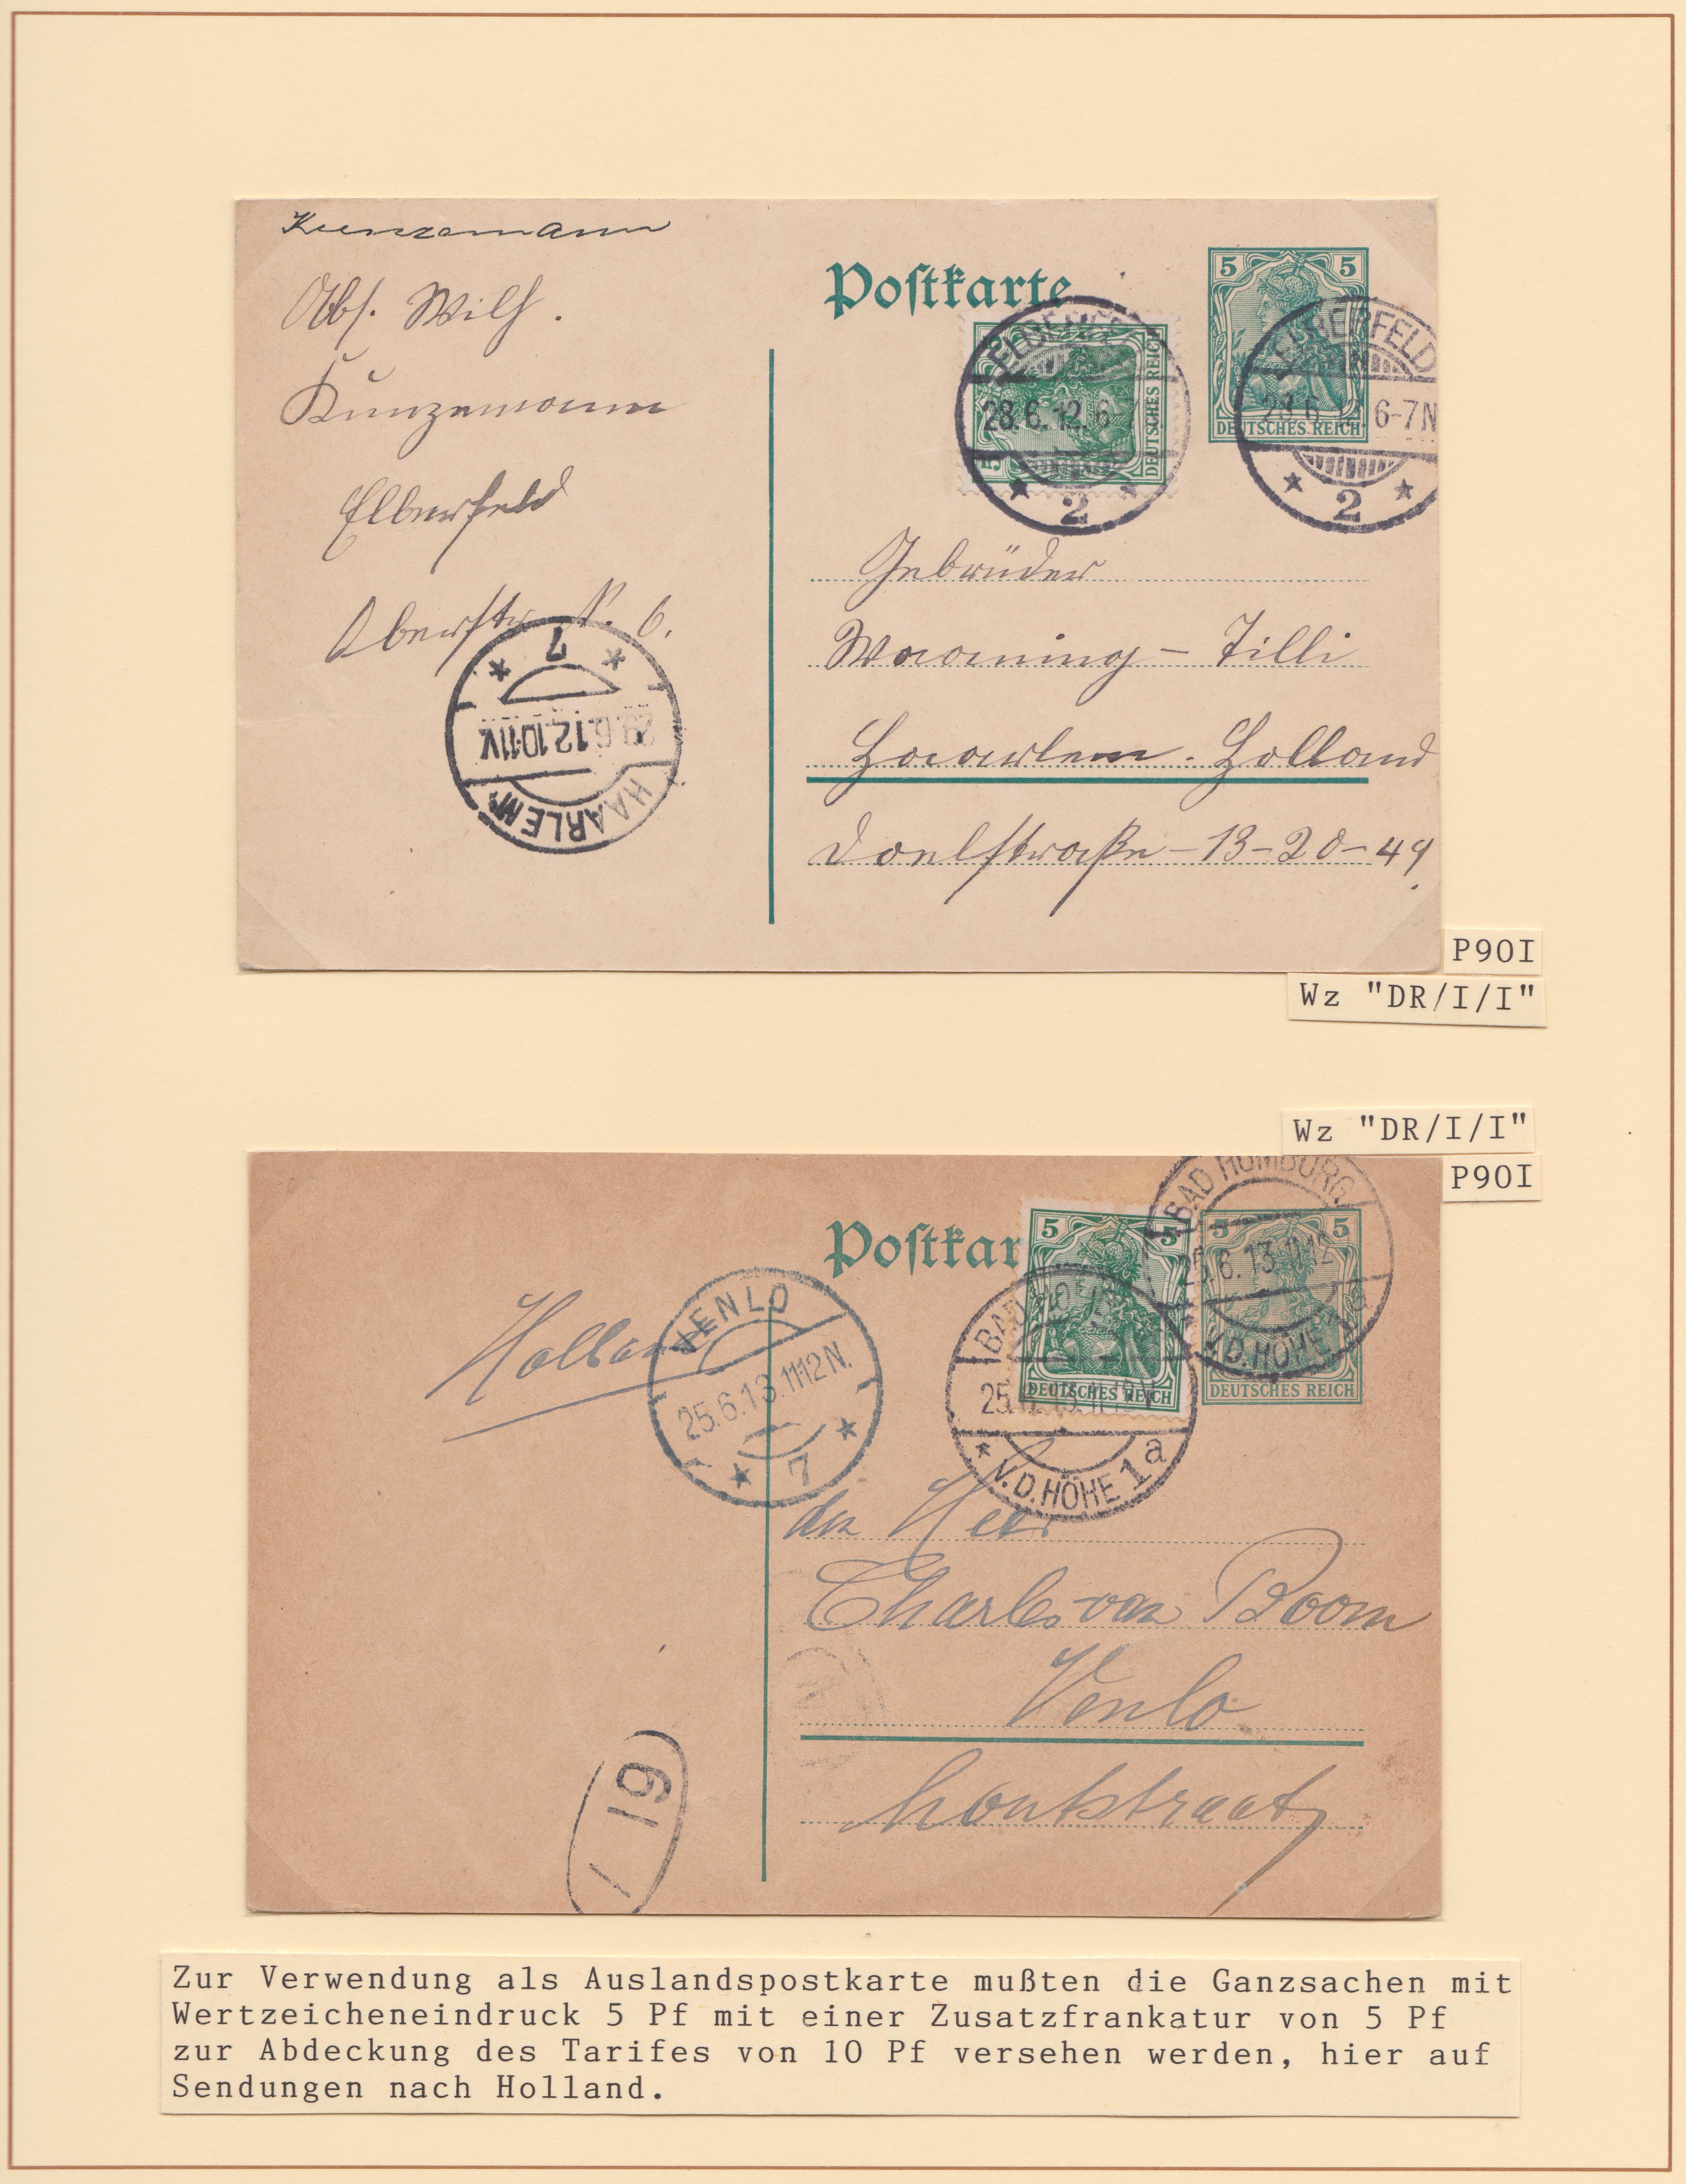 Kunzemann
Abs. Wilh.
Kunzemann
Elberfeld
Oberstr N. 6.
Postkarte
5 5
DEUTSCHES REICH
5
DEUTSCHES REICH
ELBERFELD
28.6.12.6-7
* 2 *
ELBERFELD
28.6.12.6-7N
* 2 *
* 7 *
29.6.12.10-11V
HAARLEM
Gebrüder
Waarning - Tilli
Haarlem. Holland
Doelstraße - 13-20-49.
P90I
Wz "DR/I/I"
Wz "DR/I/I"
P90I
Postkar
5 5
DEUTSCHES REICH
5 5
DEUTSCHES REICH
BAD HOMBURG
25.6.13.11-12
* V.D.HÖHE 1a
BAD HOMBURG
25.6.13.11-12V
* V.D.HÖHE 1a
Holland
VENLO
25.6.13.11-12N.
* 7 *
den Heer
Charles van Boom
Venlo
houtstraat
19
Zur Verwendung als Auslandspostkarte mußten die Ganzsachen mit
Wertzeicheneindruck 5 Pf mit einer Zusatzfrankatur von 5 Pf
zur Abdeckung des Tarifes von 10 Pf versehen werden, hier auf
Sendungen nach Holland.